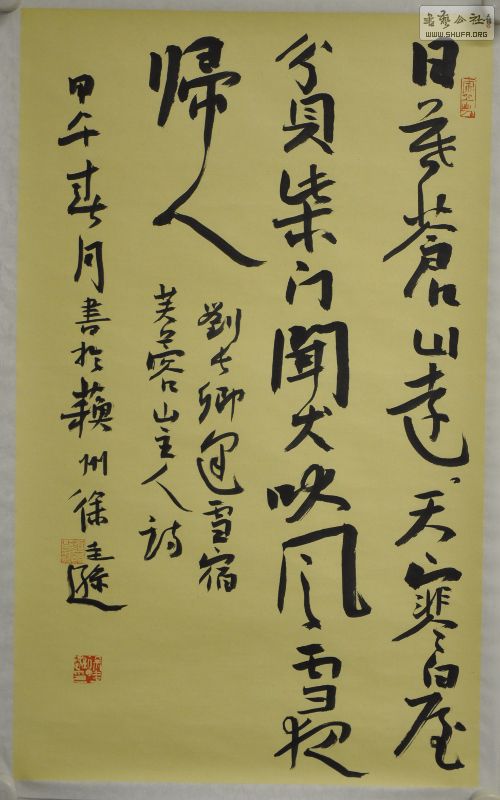 日暮蒼山遠天寒白屋
貧柴门聞犬吠风雪夜
帰人
劉长卿逢雪宿
芙蓉山主人詩
甲午春月書於蘇州徐
书艺公社
WWW.SHUFA.ORG